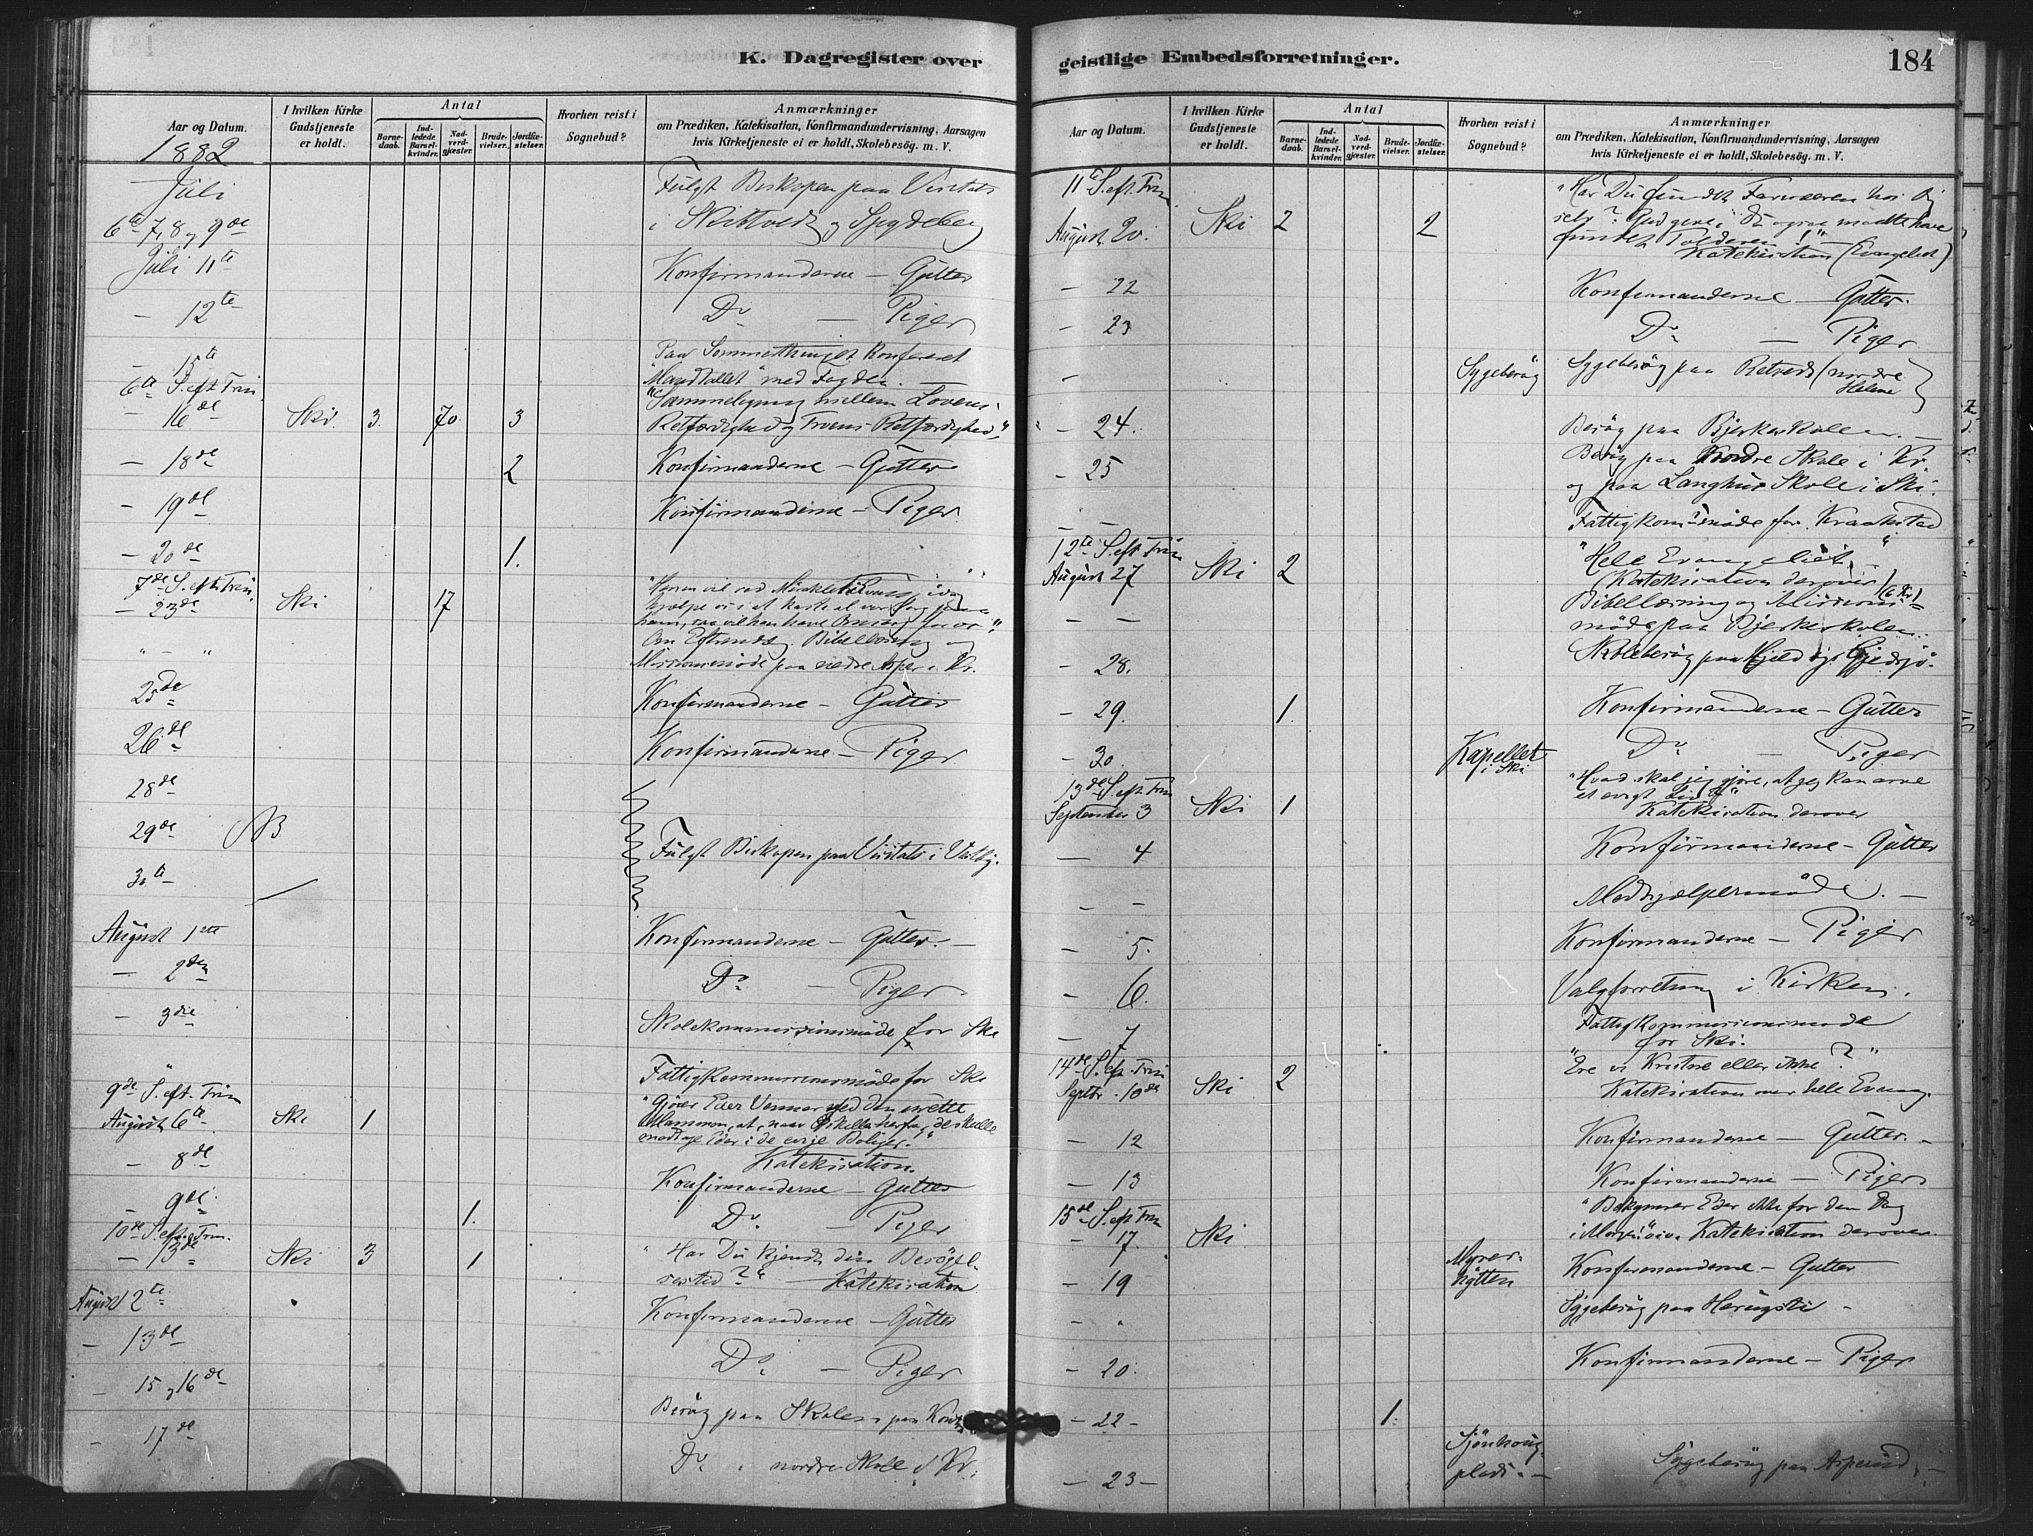 K. Dagregister over
Aar og Datum.
I hvilken Kirke Gudstjeneste er holdt.
Antal
Barnedaab.
Indledede Barselkvinder.
Nadverdgjæster.
Brudevielser.
Jordfæstelser.
Hvorhen reist i Sognebud?
Anmærkninger
om Prædiken, Katekisation, Konfirmandundervisning, Aarsagen
hvis Kirketjeneste ei er holdt, Skolebesøg. m. V.
1882
Juli
6te 7, 8 og 9de
Fulgt Biskopen paa Visitats
i Skibtvedt og Spydeberg
Juli 11te Konfirmanderne – Gutter
– 12te Do – Piger
– 15te Paa Sommerthinget konfereret
"Mandtallet" med Fogden. –
6te S. eft. Trin "Sammenligning mellem Lovens
– 16de Ski 3. 70. 3 Retfærdighed og Troens Retfærdighed."
– 18de 2 Konfirmanderne – Gutter
– 19de Konfirmanderne – Piger
– 20de 1.
7de S. eft. Trin,
– 23de Ski 17
" – " Missionsmöde paa nedre Asper i Kr.
25de Konfirmanderne – Gutter
26de Konfirmanderne – Piger
28de
29de NB Fulgt Biskopen paa Visitats i Vestby.
30te
August 1ste Konfirmanderne – Gutter. –
– 2den Do – Piger
– 3die Skolekommissionsmöde for Ski
" Fattigkommissionsmöde for Ski
9de S. eft. Trin "Gjører Eder Venner ved den urette
August 6te Ski 1 Mammon, at, naar
modtage Eder i de evige Boliger."
Katekisation.
– 8de Konfirmanderne – Gutter
– 9de 1. Do – Piger
10de S. eft. Trin. "Har Du kjendt din Besögel-
– 13de Ski 3 1 sestid?" – Katekisation
August 2te Konfirmanderne – Gutter
– 13de Do – Piger
– 15 og 16de Besög paa
– 17de Do " nordre Skole i Kr.
geistlige Embedsforretninger.
184
Aar og Datum.
I hvilken Kirke Gudstjeneste er holdt.
Antal
Barnedaab.
Indledede Barselkvinder.
Nadverdgjæster.
Brudevielser.
Jordfæstelser.
Hvorhen reist i Sognebud?
Anmærkninger
om Prædiken, Katekisation, Konfirmandundervisning, Aarsagen
hvis Kirketjeneste ei er holdt, Skolebesög. m. V.
11te S. eft. Trin "Har Du fundet Farisæeren hos Dig
August 20. Ski 2 2 selv? Gud give, Du ogsaa maatte have
fundet Tolderen!"
Katekisation (Evangeliet)
– 22 Konfirmanderne – Gutter.
– 23 Do – Piger
– Sygebesög Sygebesög paa Retvedt (nordre
Helene
" – 24. Besög paa Bjerkeskolen. –
– 25 Besög paa Nordre Skole i Kr.
og paa Langhus Skole i Ski.
– – Fattigkom.möde for Kraakstad
12te S. eft. Trin "Hele Evangeliet."
August 27 Ski 2 (Katekisation derover)
– – Bibellæsning og Missions-
möde paa Bjerkeskolen.
– 28. Skolebesög paa
– 29. 1. Konfirmanderne – Gutter
– 30. Kapellet i Ski Do – Piger
13de S. eft. Trin "Hvad skal jeg gjöre, at jeg kan arve
et evigt Liv?"
September 3 Ski 1 Katekisation derover
– 4 Konfirmanderne – Gutter
– – Medhjælpermöde. –
– 5. Konfirmanderne – Piger
– 6. Valgforretning i Kirken.
– 7 Fattigkommissionsmöde
for Ski.
14de S. eft. Trin "Ere vi Kristne eller ikke?"
Septbr. 10de Ski 2 Katekisation over hele Evang.
– 12 Konfirmanderne – Gutter. –
– 13 Konfirmanderne – Piger
15de S. eft. Trin "Bekymrer Eder ikke for den Dag
– 17. Ski i Morgen" Katekisation derover.
– 19 Myrer-
hytten Konfirmanderne – Gutter
– " Sygebesög paa Haugsti –
– 20. Konfirmanderne – Piger
– 22 – 1.
– 23 – Sygebesög paa